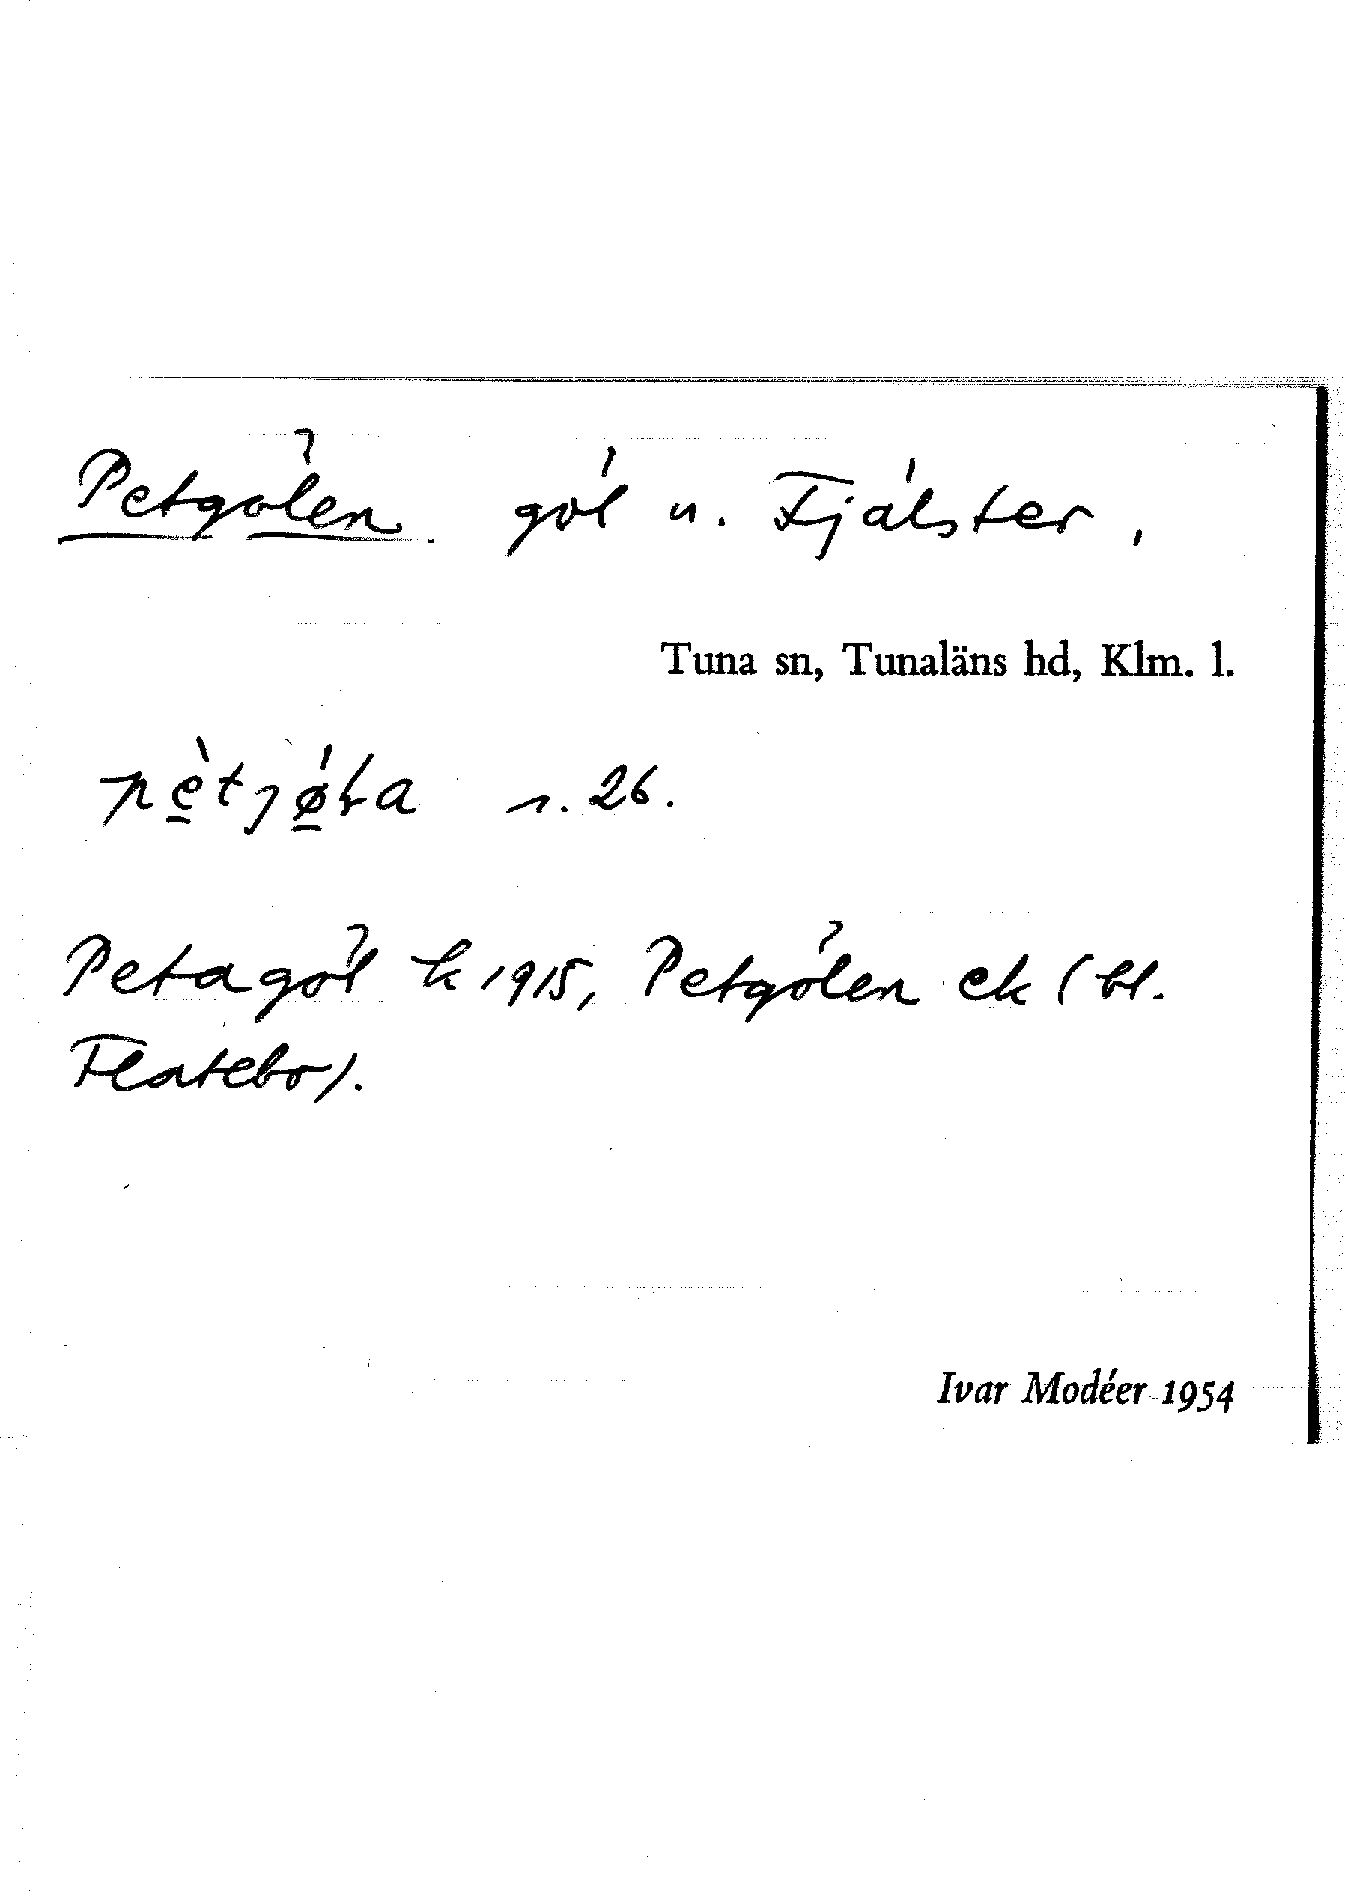 Petgölen. göl u. Fjälster,
Tuna sn, Tunaläns hd, Klm. l.
pètjø̀ɫa s. 26.
Petagöl k 1915, Petgölen ek (bl.
Flatebo).
Ivar Modéer 1954